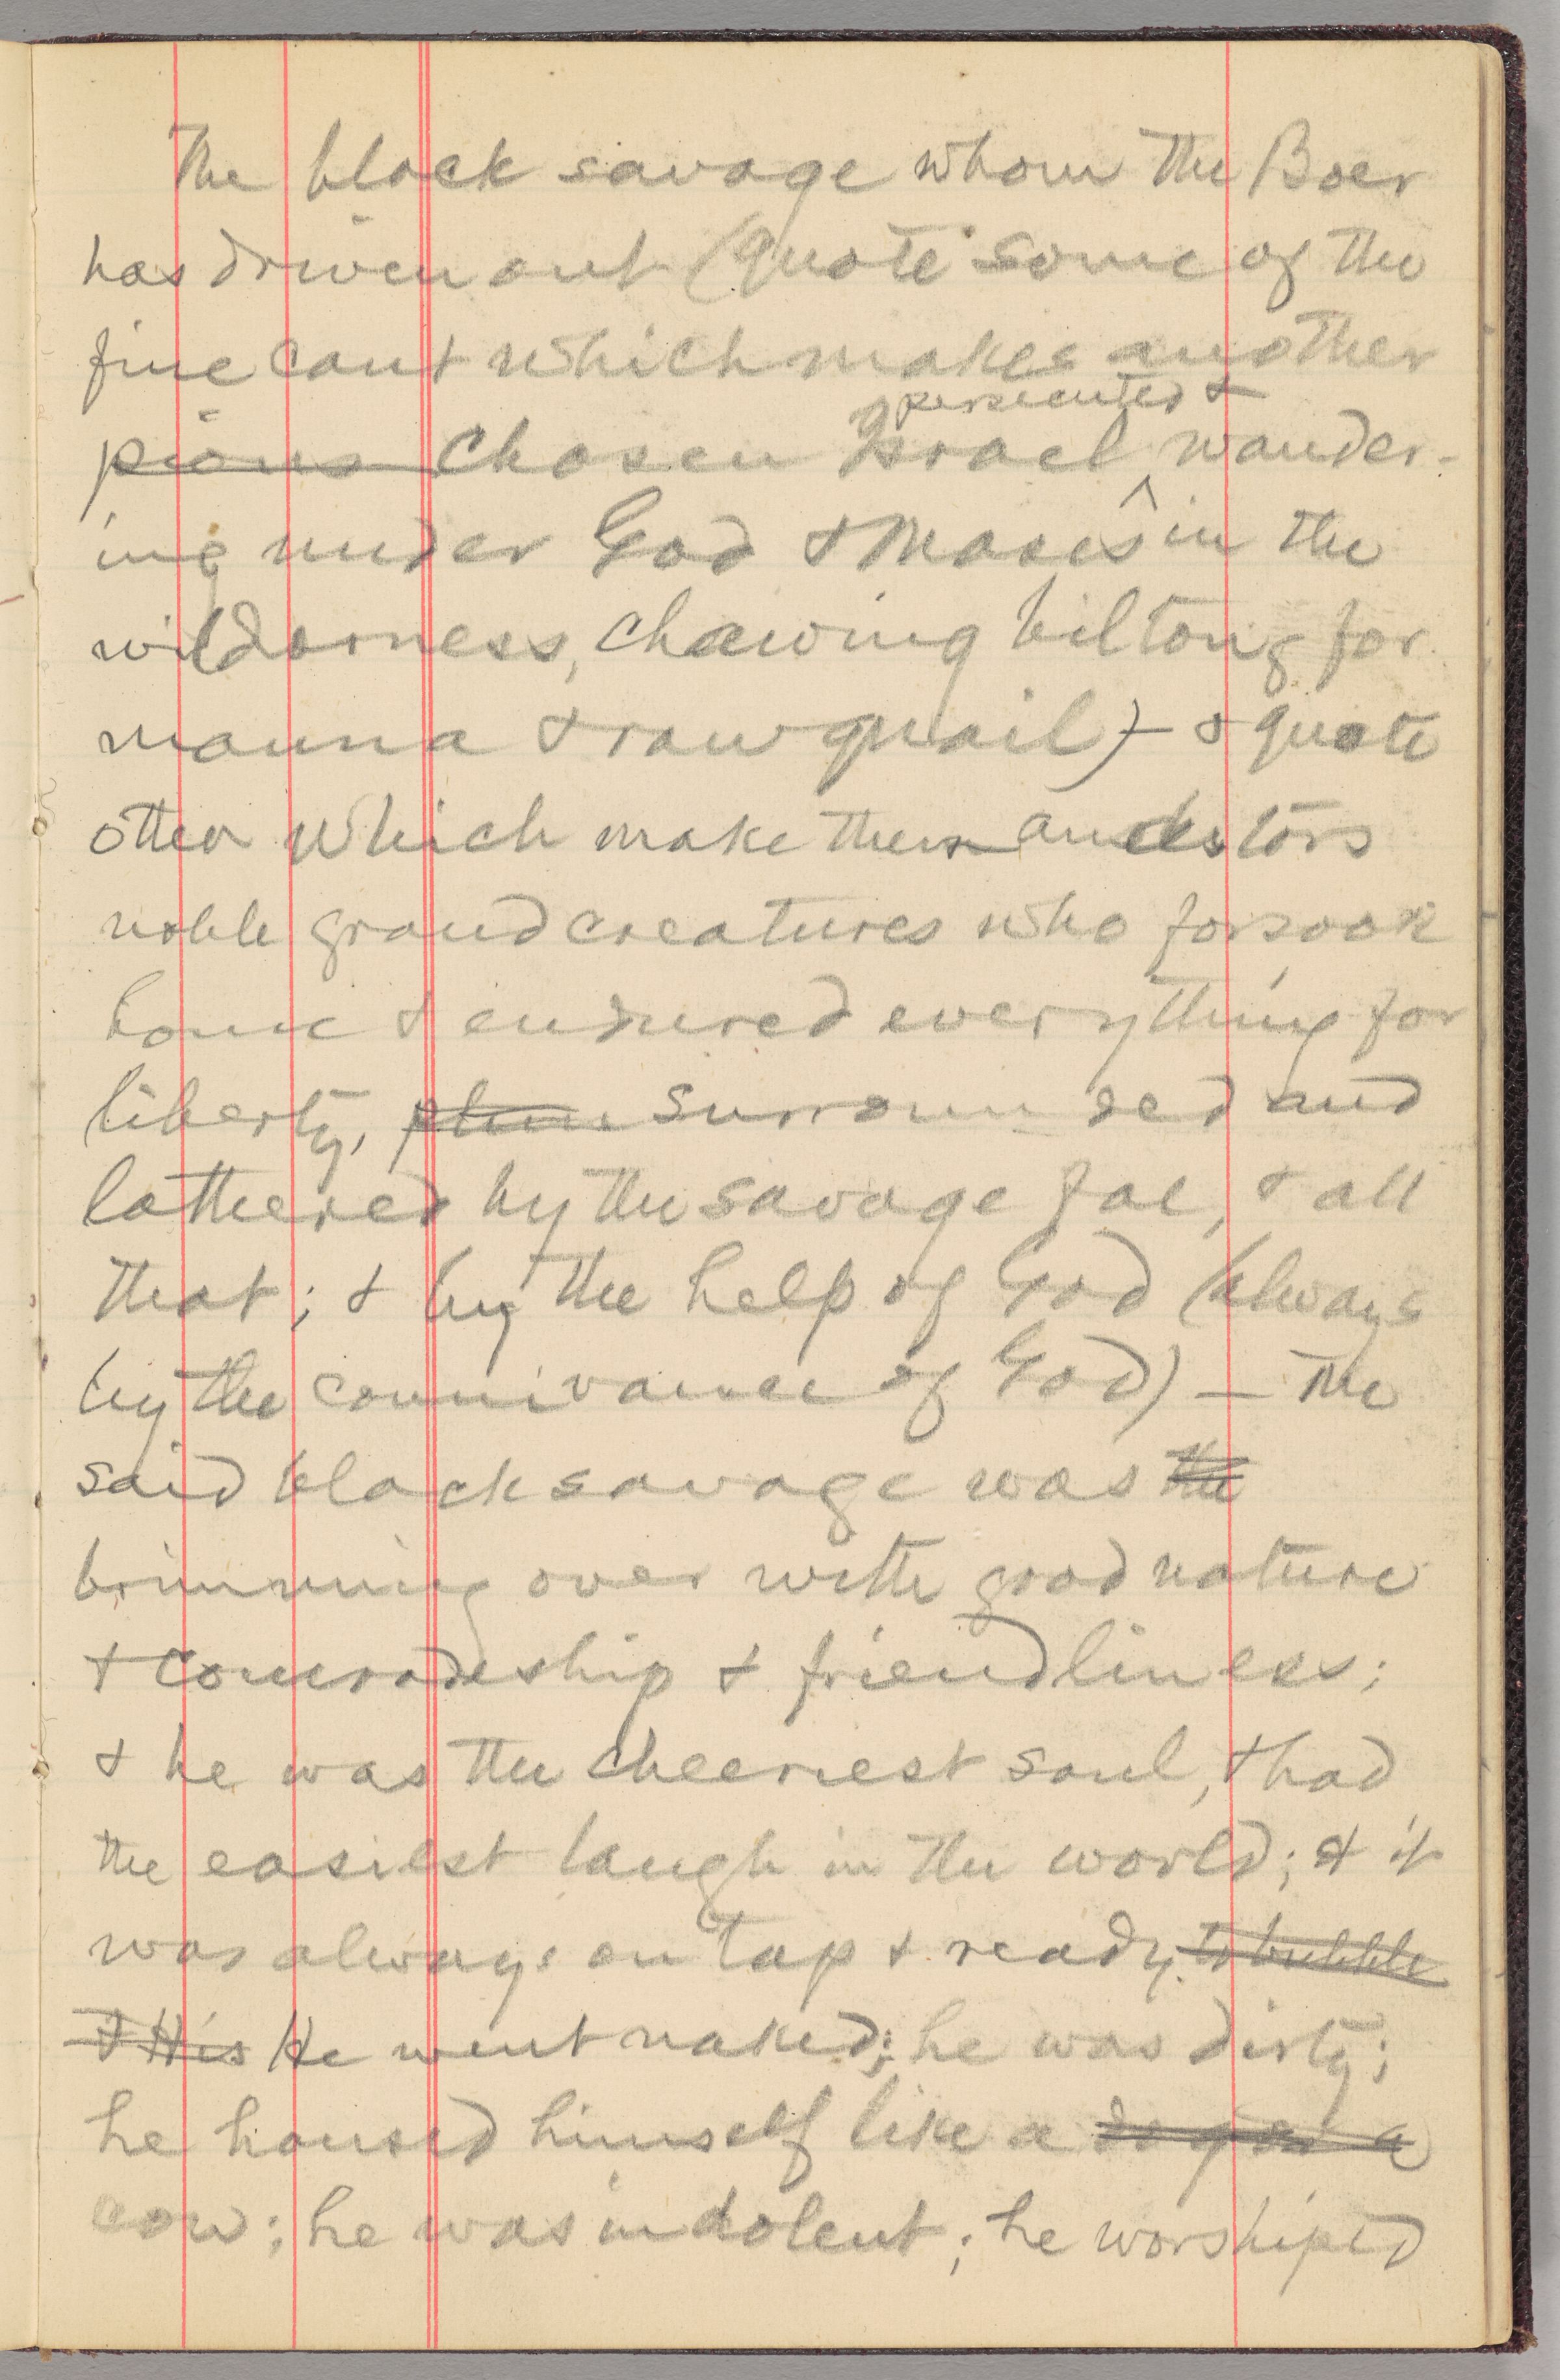 The black savage whom the Boer
has driven out (quote some of the
fine cant which makes another
persecuted &
pious chosen Israel wander-
ing under God & Moses in the
wilderness, chawing biltong for
manna & raw quail) — & quote
other which make them ancestors
noble grand creatures who forsook
home & endured everything for
liberty, surrounded and
lathered by the savage foe, & all
that; & by the help of God (always
by the connivance of God) — the
said black savage was the
brimming over with good nature
& comradeship & friendliness;
& he was the cheeriest soul, & had
the easiest laugh in the world; & it
was always on tap & ready. to bubble
& His He went naked; he was dirty;
he housed himself like a dog or a
cow; he was indolent; he worshiped